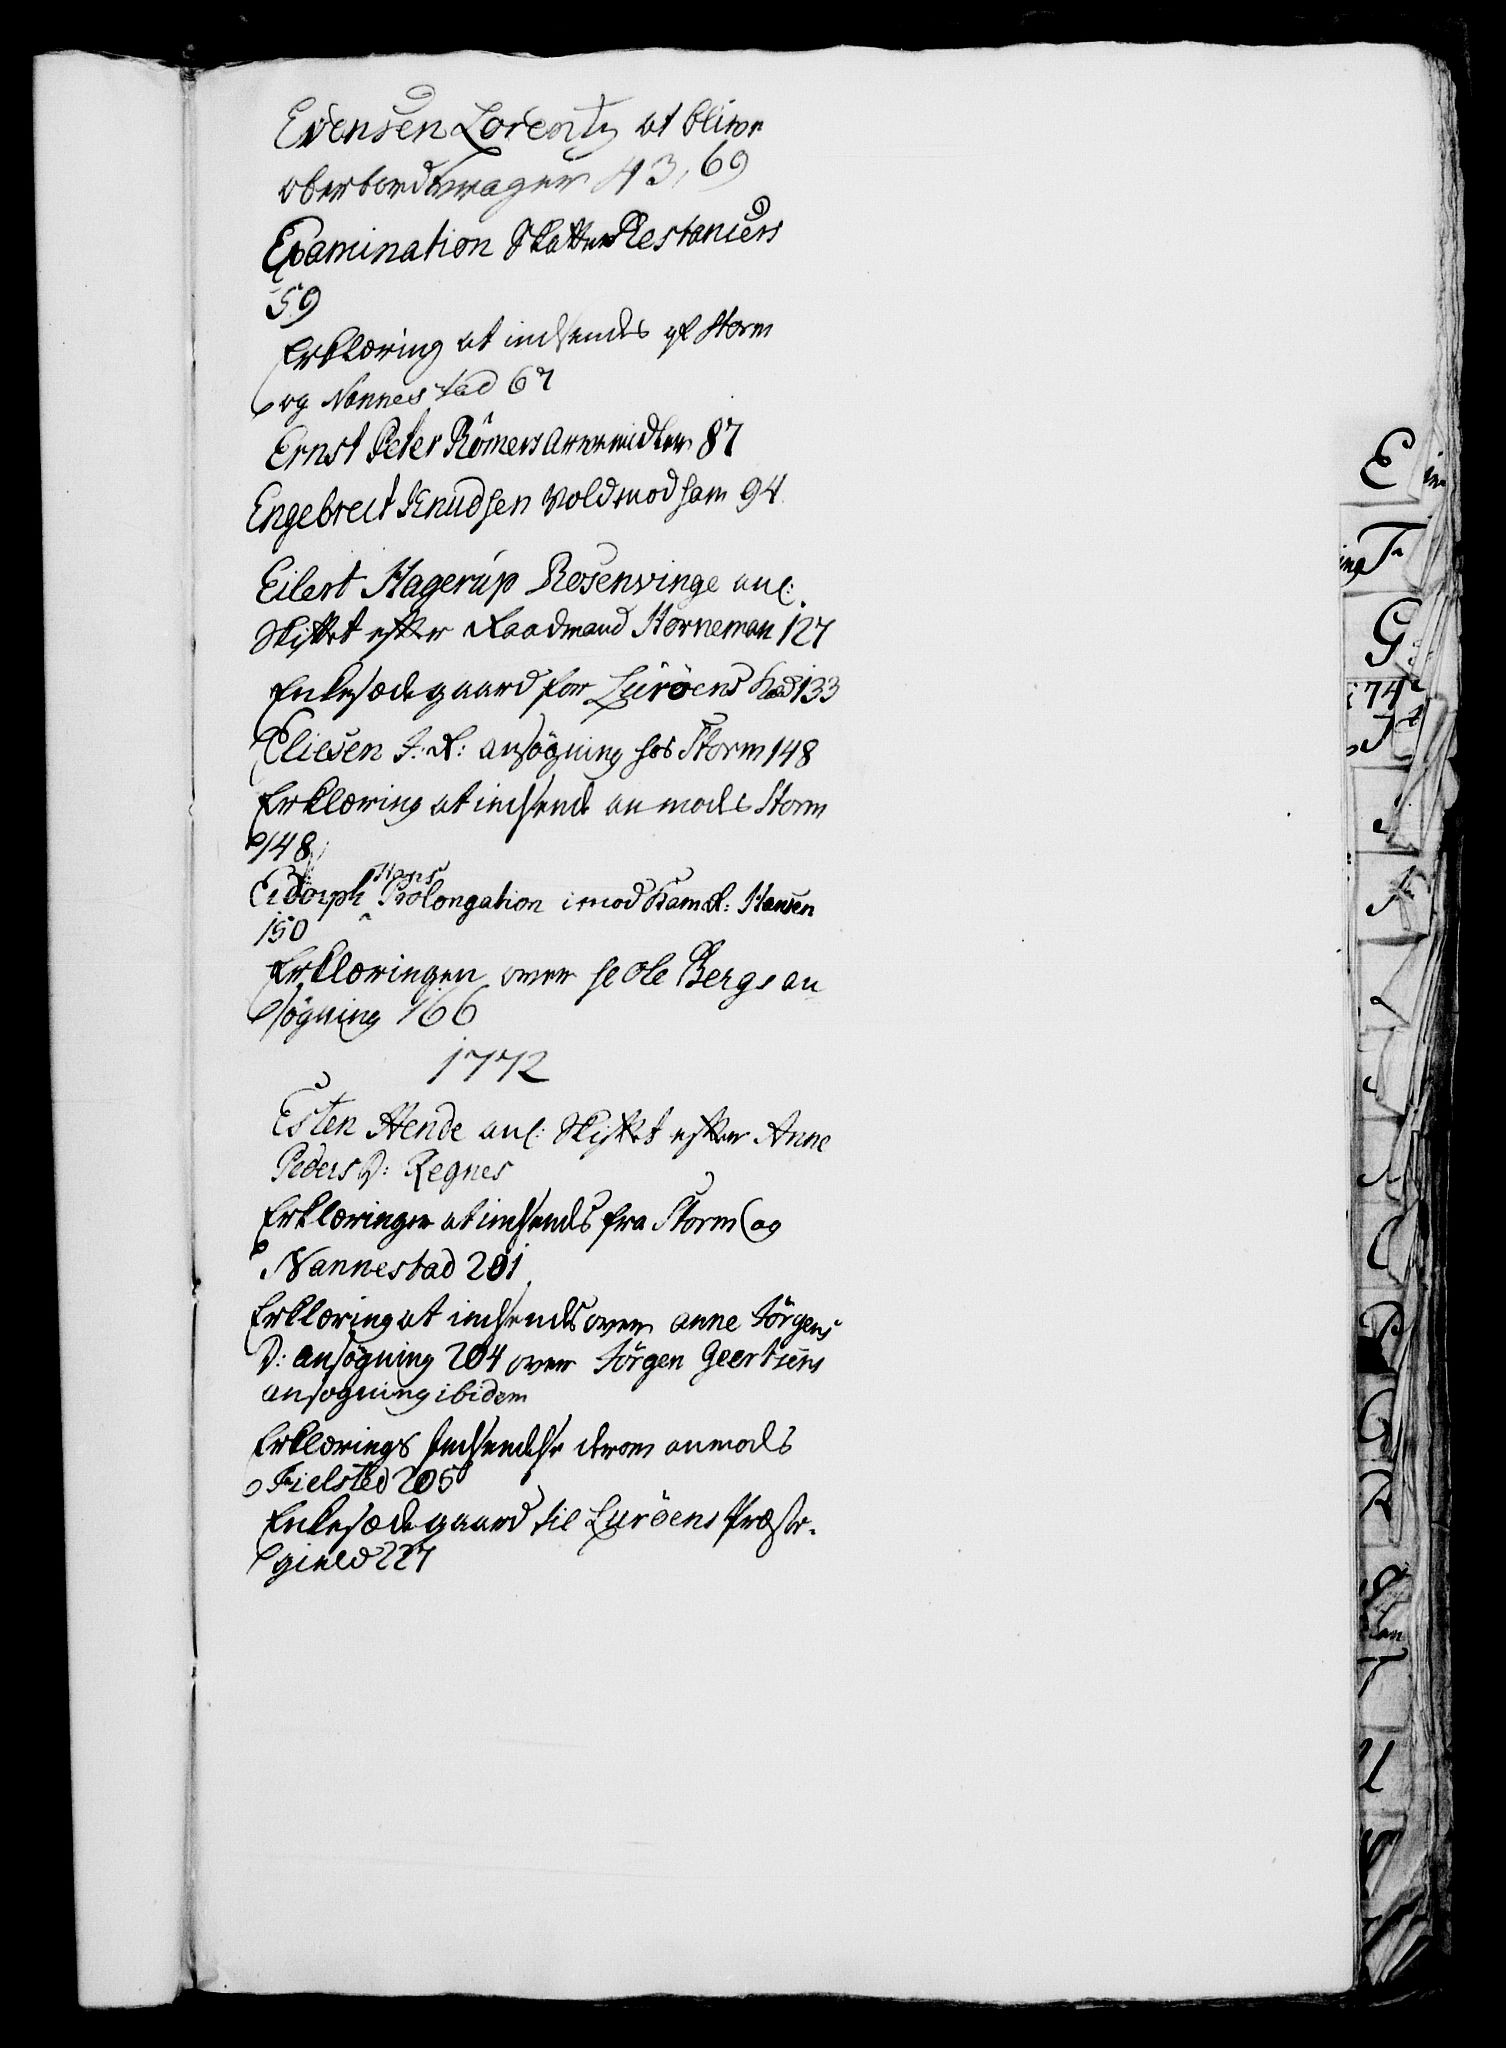 Evensen Lorentz at blive
oberbordvrager 43, 69
Examination Skatte Restancers
59
Erklæring at indsendes af Storm
og Nannestad 67
Ernst Peter Römers arvemidler 87
Engebrect Knudsen Voldmod ham 94
Eilert Hagerup Rosenvinge anl:
Skiftet efter Raadmand Horneman 127
Enkesædegaard for Luröens Kald 133
Eliesen J: R: ansögning hos Storm 148
Erklæring at indsende anmodes Storm
148
Eidorph Hans Prolongation imod Kam R: Hansen
150
Erklæringen over sl Ole Bergs an
søgning 166
1772
Esten Hende anl: Skiftet efter Anne
Peders D: Regnes
Erklæringer at indsendes fra Storm og
Nannestad 201
Erklæring at indsendes over anne Jörgens
D: ansögning 204 over Jörgen Geertsens
ansogning ibidem
Erklærings Indsendelse derom anmodes
Fielsted 205
Enkesædegaard til Luröens Præste-
gield 227
E
F
G
174
U